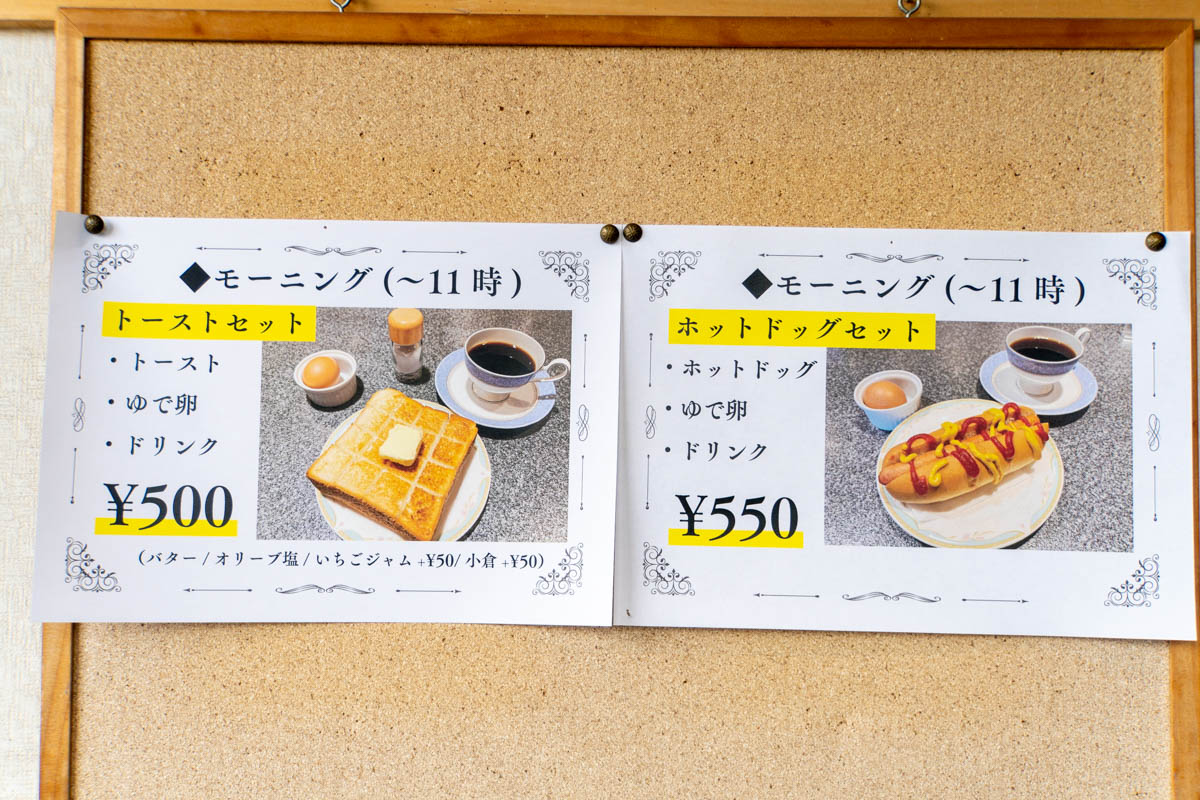 ◆モーニング(〜11時)
トーストセット
・トースト
・ゆで卵
・ドリンク
¥500
(バター/オリーブ塩/いちごジャム+¥50/小倉+¥50)
◆モーニング(〜11時)
ホットドッグセット
・ホットドッグ
・ゆで卵
・ドリンク
¥550